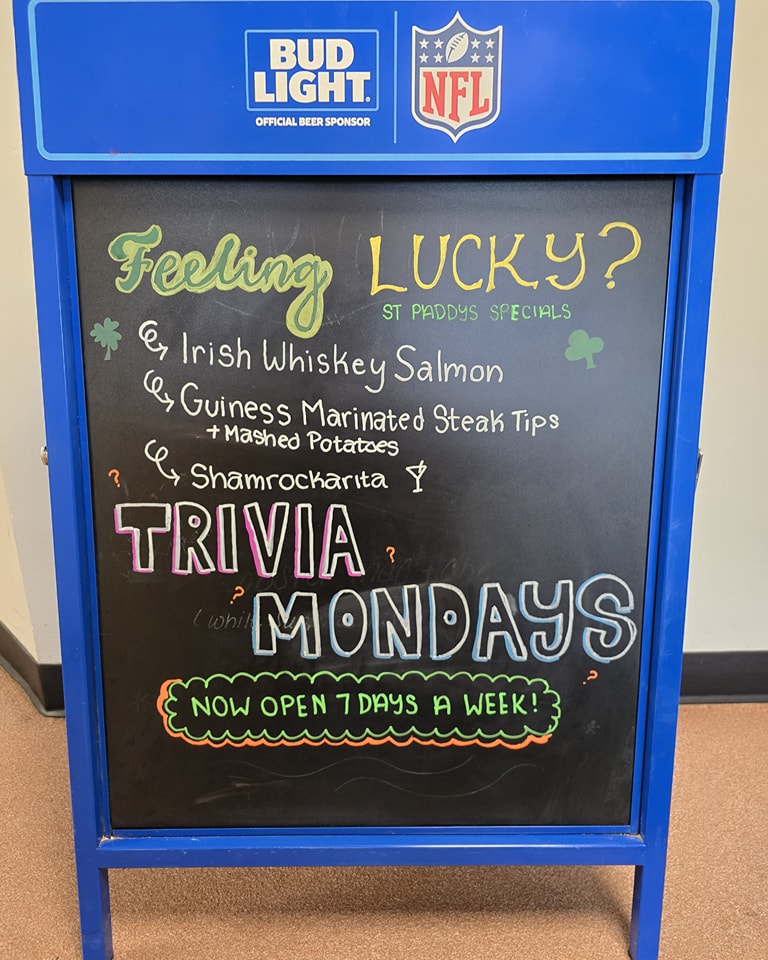 BUD
LIGHT.
OFFICIAL BEER SPONSOR
NFL
Feeling LUCKY?
ST PADDYS SPECIALS
Irish Whiskey Salmon
Guiness Marinated Steak Tips
+ Mashed Potatoes
Shamrockarita
?
TRIVIA
?
?
MONDAYS
?
NOW OPEN 7 DAYS A WEEK!